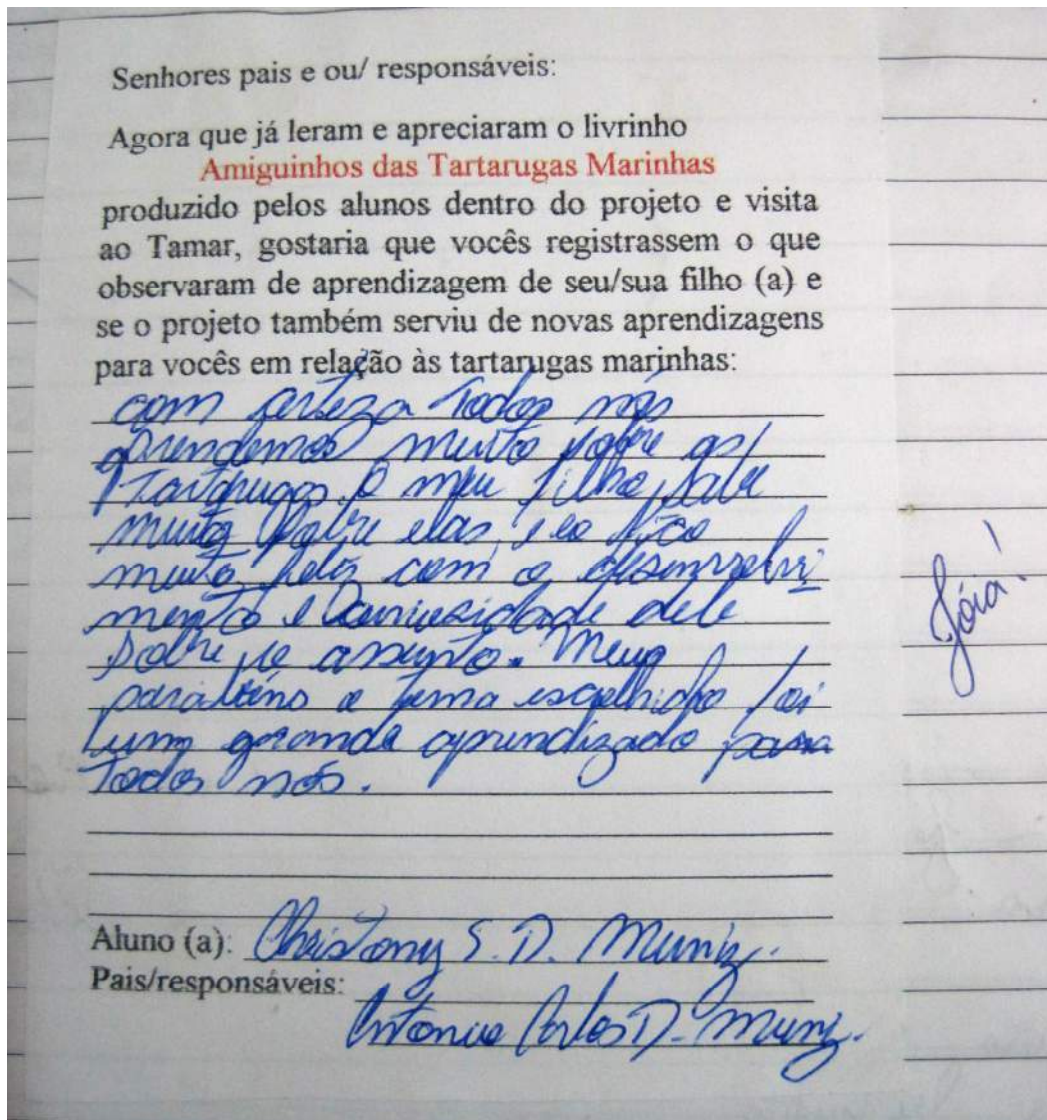 Senhores pais e ou/ responsáveis:
Agora que já leram e apreciaram o livrinho
Amiguinhos das Tartarugas Marinhas
produzido pelos alunos dentro do projeto e visita
ao Tamar, gostaria que vocês registrassem o que
observaram de aprendizagem de seu/sua filho (a) e
se o projeto também serviu de novas aprendizagens
para vocês em relação às tartarugas marinhas:
com certeza todos nós
aprendemos muito sobre as
Tartarugas o meu filho sabe
muito sobre elas, e eu fico
muito feliz com o desenvolvi
mento e curiosidade dele
sobre o assunto. Meus
parabéns o tema escolhido foi
um grande aprendizado para
todos nós.
Jóia!
Aluno (a): Christony S. D. Muniz.
Pais/responsáveis:
Antonio Carlos D. Muniz.